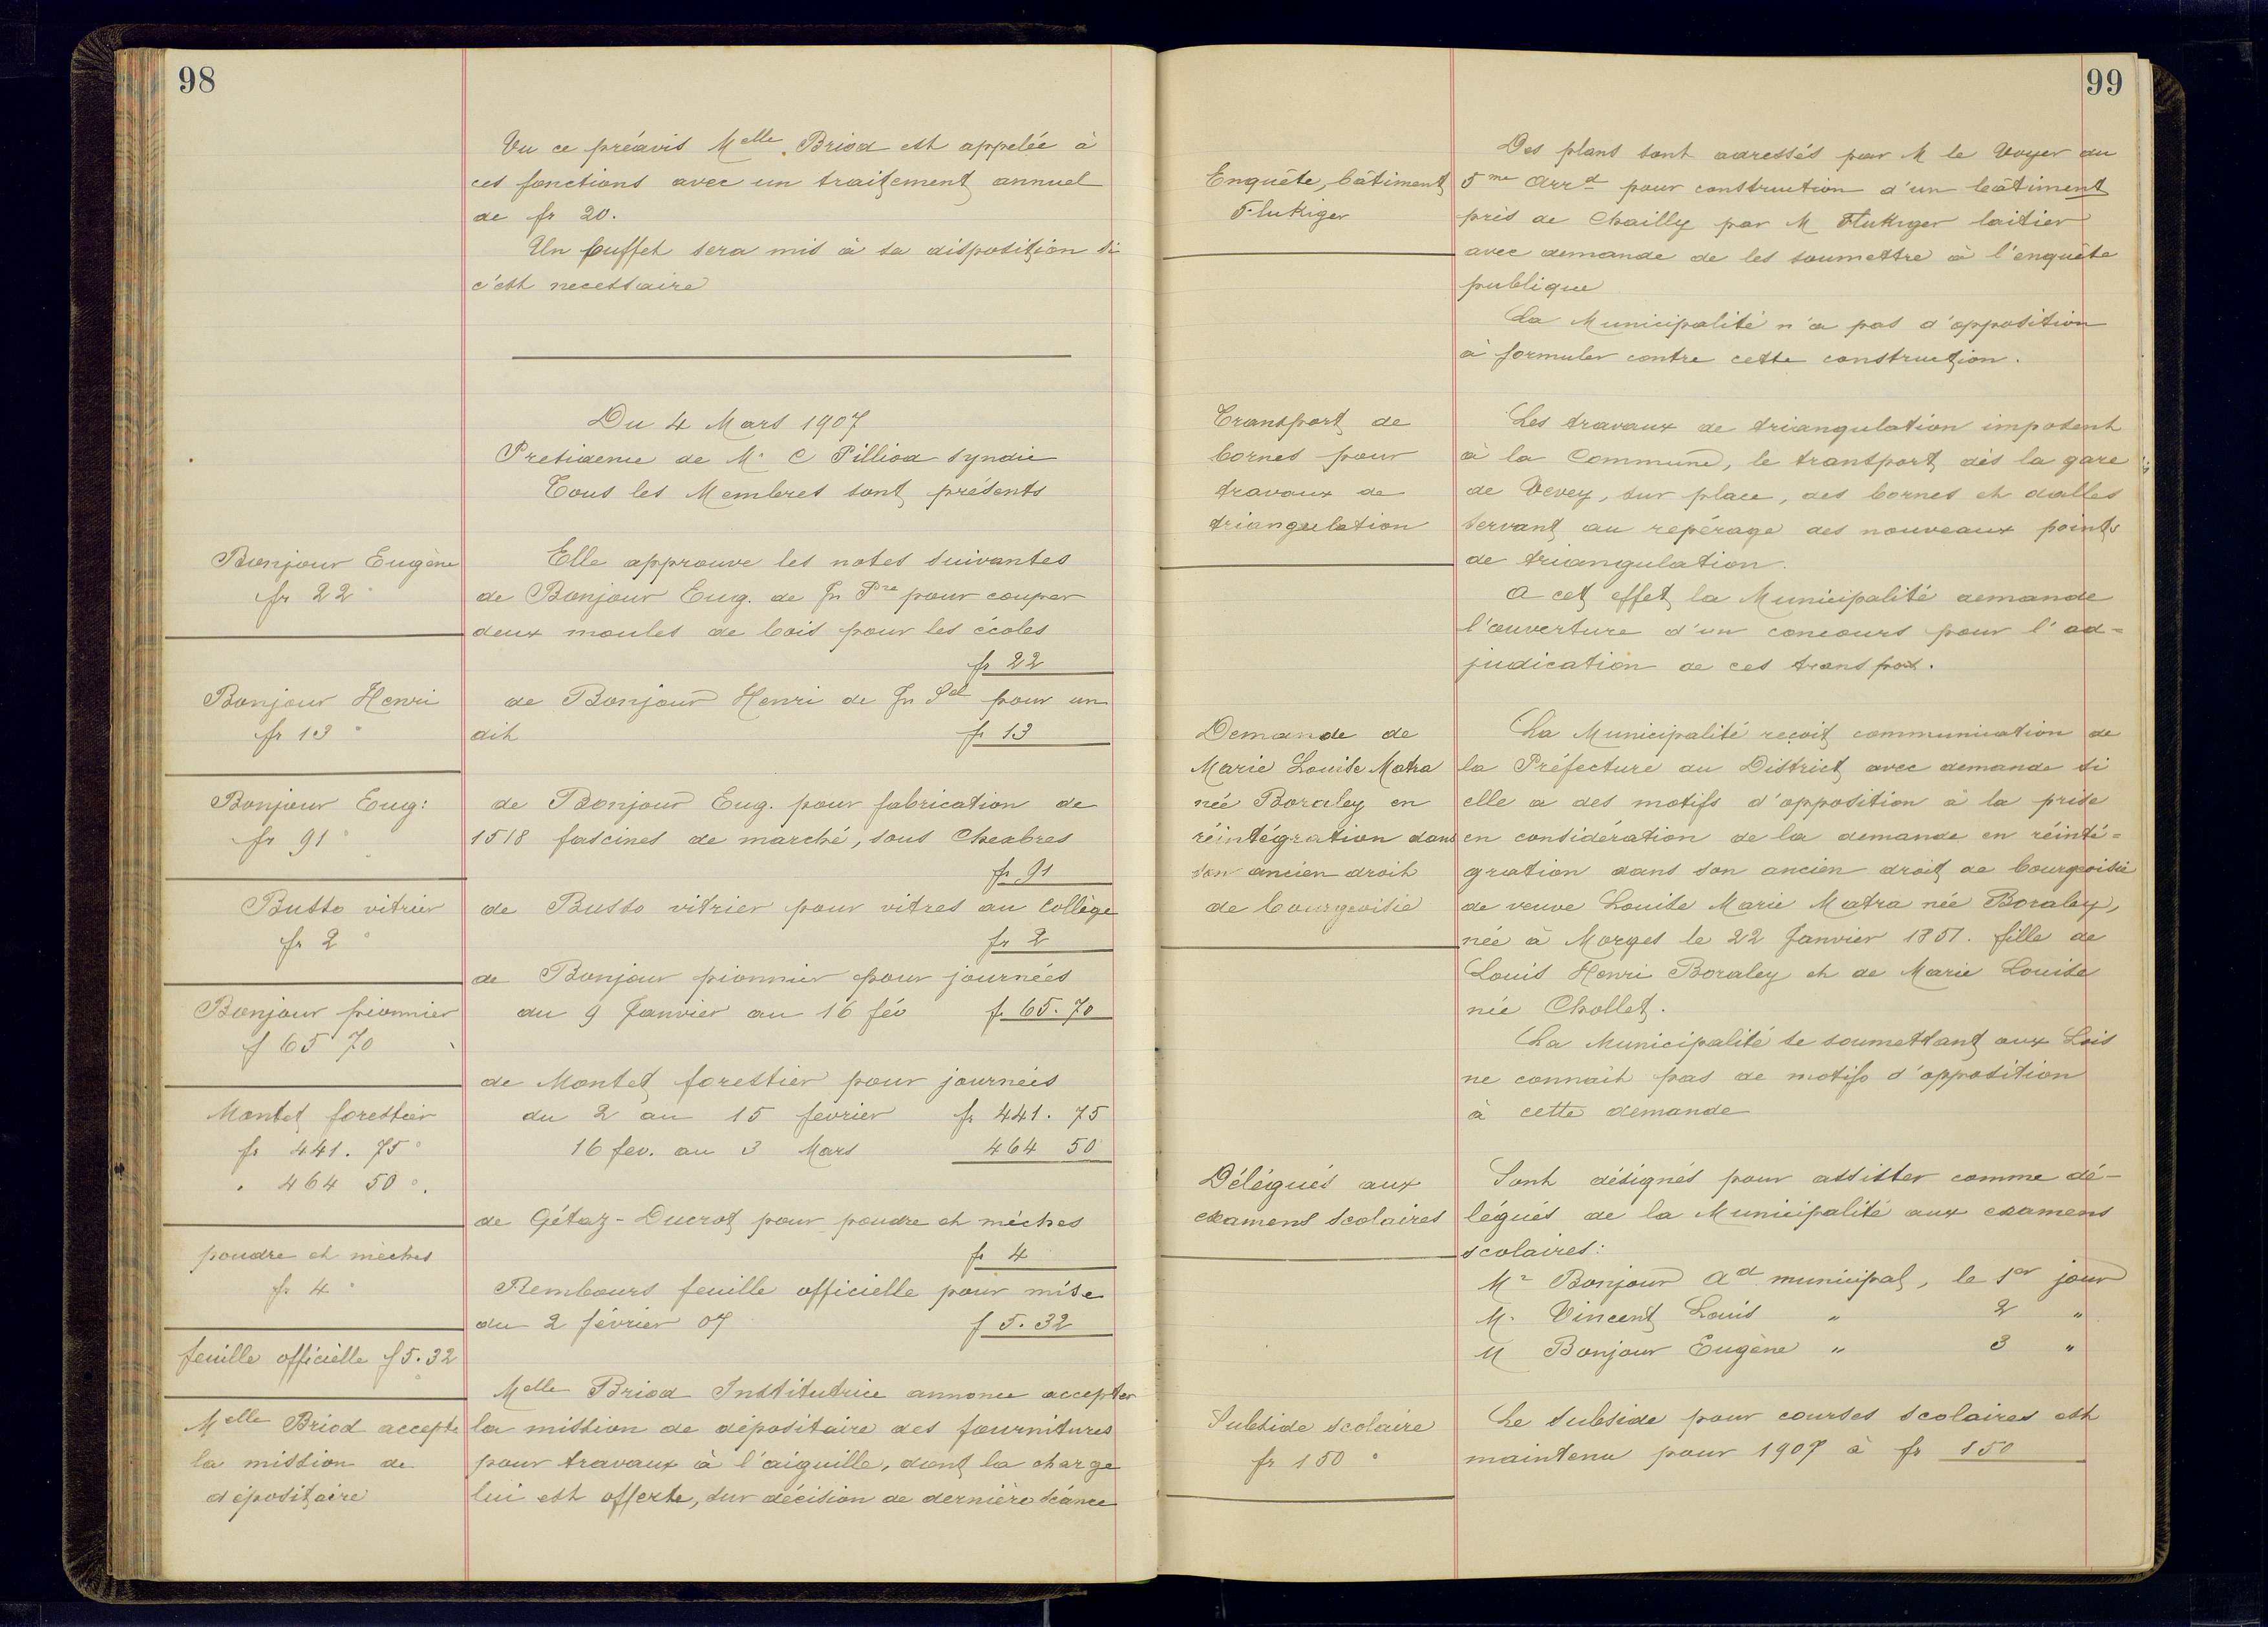 98
Vu ce préavis Melle. Briod est appelée à
ces fonctions avec un traitement annuel
de fr 20.
Un buffet sera mis à sa disposition si
c'est necessaire
Du 4 Mars 1907
Presidence de Mr C Pilliod Syndic
Tous les Membres sont présents
Bonjour Eugène
fr 22
Elle approuve les notes suivantes
de Bonjour Eug. de Jn Pre pour couper
deux moules de bois pour les écoles
fr 22
Bonjour Henri
fr 13
de Bonjour Henri de Jn Sel pour un
dit fr 13
Bonjour Eug:
fr 91
de Bonjour Eug. pour fabrication de
1518 fascines de marché, sous Chexbres
fr 91
Busso vitrier
fr 2
de Busso vitrier pour vitres au Collège
fr 2
Bonjour pionnier
f 65 70
de Bonjour pionnier pour journées
du 9 Janvier au 16 fév f. 65.70
Montet forestier
fr 441. 75
" 464 50
de Montet forestier pour journées
du 2 au 15 fevrier fr 441. 75
16 fev. au 3 Mars 464 50
poudre et mèches
fr 4
de Gétaz-Ducrot pour poudre et mèches
fr 4
feuille officielle f 5.32
Rembours feuille officielle pour mise
du 2 février 07 f 5.32
Melle Briod accepte
la mission de
dépositaire
Melle Briod Institutrice annonce accepter
la mission de dépositaire des fournitures
pour travaux à l'aiguille, dont la charge
lui est offerte, sur décision de dernière séance
99
Enquête, bâtiment
Flukiger
Des plans sont adressés par M le Voyer du
5me Arrd pour construction d'un bâtiment
près de Chailly par M Flukiger laitier
avec demande de les soumettre à l'enquête
publique
La Municipalité n'a pas d'opposition
à formuler contre cette construction.
Transport de
bornes pour
travaux de
triangulation
Les travaux de triangulation imposent
à la Commune, le transport dès la gare
de Vevey, sur place, des bornes et dalles
servant au repérage des nouveaux points
de triangulation.
A cet effet la Municipalité demande
l'ouverture d'un concours pour l'ad=
judication de ces transport.
Demande de
Marie Louise Matra
née Boraley en
réintégration dans
son ancien droit
de bourgeoisie
La Municipalité reçoit communication de
la Préfecture du District avec demande si
elle a des motifs d'opposition à la prise
en considération de la demande en réinté=
gration dans son ancien droit de bourgeoisie
de veuve Louise Marie Matra née Boraley,
née à Morges le 22 Janvier 1851. fille de
Louis Henri Boraley et de Marie Louise
née Chollet.
La Municipalité se soumettant aux Lois
ne connait pas de motifs d'opposition
à cette demande
Délégués aux
examens scolaires
Sont désignés pour assister comme dé-
légués de la Municipalité aux examens
scolaires:
Mr Bonjour Ad municipal, le 1er jour
M. Vincent Louis " 2 "
M Bonjour Eugène " 3 "
Subside scolaire
fr 150
Le subside pour courses scolaires est
maintenu pour 1907 à fr 150